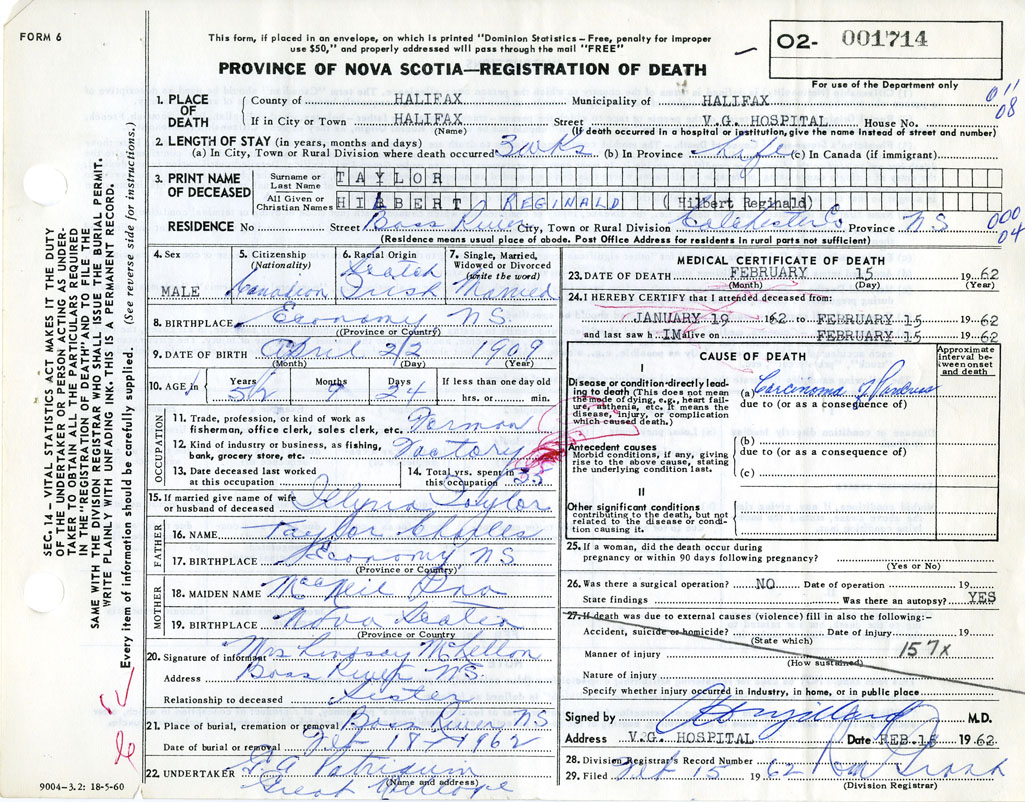 FORM 6
This form, if placed in an envelope, on which is printed "Dominion Statistics – Free, penalty for improper
use $50," and properly addressed will pass through the mail "FREE"
O2- 001714
PROVINCE OF NOVA SCOTIA—REGISTRATION OF DEATH
For use of the Department only
011
08
1. PLACE OF DEATH
County of HALIFAX Municipality of HALIFAX
If in City or Town HALIFAX Street V.G. HOSPITAL House No.
(Name) (If death occurred in a hospital or institution, give the name instead of street and number)
2. LENGTH OF STAY (in years, months and days)
(a) In City, Town or Rural Division where death occurred 3 wks (b) In Province Life (c) In Canada (if immigrant)
3. PRINT NAME OF DECEASED
Surname or Last Name TAYLOR
All Given or Christian Names HILBERT REGINALD (Hilbert Reginald)
000
04
RESIDENCE No Street Bass River City, Town or Rural Division Colchester Co Province NS
(Residence means usual place of abode. Post Office Address for residents in rural parts not sufficient)
4. Sex MALE
5. Citizenship (Nationality) Canadian
6. Racial Origin Scotch Irish
7. Single, Married, Widowed or Divorced (write the word) Married
8. BIRTHPLACE Economy N.S.
(Province or Country)
9. DATE OF BIRTH April 22 1909
(Month) (Day) (Year)
10. AGE in Years 52 Months 9 Days 24 If less than one day old hrs. or min.
OCCUPATION
11. Trade, profession, or kind of work as
fisherman, office clerk, sales clerk, etc.
12. Kind of industry or business, as fishing,
bank, grocery store, etc. Factory
13. Date deceased last worked
at this occupation
14. Total yrs. spent in
this occupation 35
15. If married give name of wife
or husband of deceased Taylor
FATHER
16. NAME Taylor Charles
17. BIRTHPLACE Economy N.S.
(Province or Country)
MOTHER
18. MAIDEN NAME MacNeil
19. BIRTHPLACE Nova Scotia
(Province or Country
20. Signature of informant Mrs Lindsay McLellan
Address Bass River N.S.
Relationship to deceased Sister
21. Place of burial, cremation or removal Bass River NS
Date of burial or removal Feb 18 1962
22. UNDERTAKER
(Name and address)
Great Village
MEDICAL CERTIFICATE OF DEATH
23. DATE OF DEATH FEBRUARY 15 19 62
(Month) (Day) (Year)
24. I HEREBY CERTIFY that I attended deceased from:
JANUARY 19 1962 to FEBRUARY 15 19 62
and last saw h IM alive on FEBRUARY 15 19 62
CAUSE OF DEATH
Approximate interval between onset and death
I
Disease or condition directly lead-
ing to death (This does not mean
the mode of dying, e.g., heart fail-
ure, asthenia, etc. It means the
disease, injury, or complication
which caused death.)
(a) Carcinoma of Pancreas
due to (or as a consequence of)
Antecedent causes
Morbid conditions, if any, giving
rise to the above cause, stating
the underlying condition last.
(b)
due to (or as a consequence of)
(c)
II
Other significant conditions
contributing to the death, but not
related to the disease or condi-
tion causing it.
25. If a woman, did the death occur during
pregnancy or within 90 days following pregnancy?
(Yes or No)
26. Was there a surgical operation? NO Date of operation 19
State findings Was there an autopsy? YES
27. If death was due to external causes (violence) fill in also the following:–
Accident, suicide or homicide? Date of injury 19
(State which)
157X
Manner of injury
(How sustained)
Nature of injury
Specify whether injury occurred in industry, in home, or in public place
Signed by M.D.
Address V.G. HOSPITAL Date FEB.15 19 62
28. Division Registrar's Record Number
29. Filed Feb 15 19 62
(Division Registrar)
SEC. 14 - VITAL STATISTICS ACT MAKES IT THE DUTY
OF THE UNDERTAKER OR PERSON ACTING AS UNDER-
TAKER TO OBTAIN ALL THE PARTICULARS REQUIRED
IN THE "REGISTRATION OF DEATH" AND TO FILE THE
SAME WITH THE DIVISION REGISTRAR WHO SHALL ISSUE THE BURIAL PERMIT.
WRITE PLAINLY WITH UNFADING INK. THIS IS A PERMANENT RECORD.
Every item of information should be carefully supplied. (See reverse side for instructions.)
9004-3.2: 18-5-60